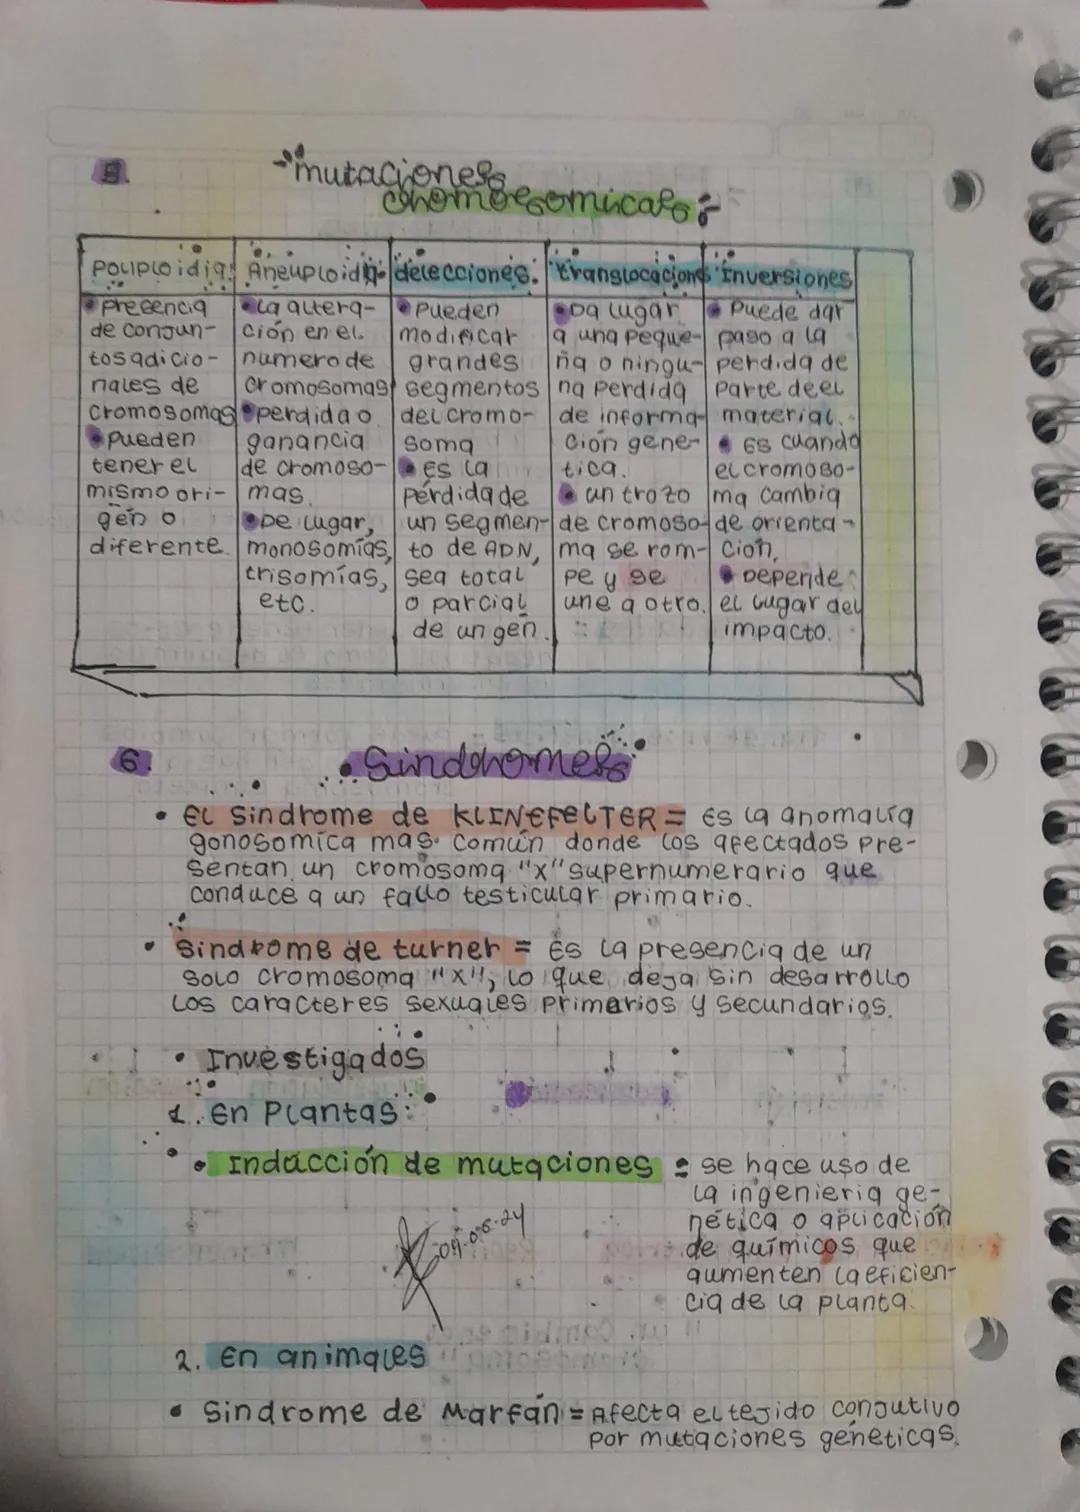 5.
mutaciones
cromosomicas:
Poliploidia:
presencia
de conjun-
tos adicio-
nales de
cromosomas
pueden
tener el
mismo ori-
gen o
diferente.
Aneuploidia
la altera-
ción en el
numero de
cromosomas
perdida o
ganancia
de cromoso-
mas.
De lugar,
monosomías,
trisomías,
etc.
delecciones.
Pueden
modificar
grandes
segmentos
del cromo-
soma
es la
pérdida de
un segmen-
to de ADN,
sea total
o parcial
de un gen.
translocaciones
Da lugar
a una peque-
ña o ningu-
na perdida
de informa-
ción gene-
tica.
un trozo
de cromoso-
ma se rom-
pe y se
une a otro.
Inversiones
Puede dar
paso a la
perdida de
parte de el
material.
Es cuando
el cromoso-
ma cambia
de orienta-
ción.
Depende
el lugar del
impacto.
6.
Sindromes
El sindrome de KLINEFELTER = Es la anomalía
gonosomica mas común donde los afectados pre-
sentan un cromosoma "x" supernumerario que
conduce a un fallo testicular primario.
Sindrome de turner = Es la presencia de un
solo cromosoma "x", lo que deja sin desarrollo
los caracteres sexuales primarios y secundarios.
Investigados
1. En Plantas:
Inducción de mutaciones : se hace uso de
la ingenieria ge-
nética o aplicación
de químicos que
aumenten la eficien-
cia de la planta.
2. En animales
Sindrome de Marfán = Afecta el tejido conjutivo
por mutaciones géneticas.